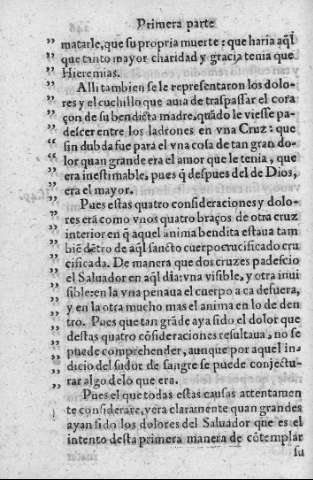 Primera parte
” matarle, que su propria muerte: que haria aq̃l
” que tanto mayor charidad y gracia tenia que
” Hieremias.
” Alli tambien se le representaron los dolo-
” res y el cuchillo que auia de traspassar el cora
” çon de su bendicta madre, quãdo le viesse pa-
” descer entre los ladrones en vna Cruz: que
“ sin dubda fue para el vna cosa de tan gran do-
” lor quan grande era el amor que le tenia, que
” era inestimable, pues q̃ despues del de Dios,
” era el mayor.
” Pues estas quatro consideraciones y dolo-
” res erã como vnos quatro braços de otra cruz
” interior en q̃ aquel anima bendita estaua tam
” biẽ dẽtro de aq̃l sancto cuerpo crucificado cru
” cificada. De manera que dos cruzes padescio
” el Saluador en aq̃l dia: vna visible, y otra inui
” sible: en la vna penaua el cuerpo aca defuera,
” y en la otra mucho mas el anima en lo de den
” tro. Pues que tan grãde aya sido el dolor que
” destas quatro cõsideraciones resultaua, no se
” puede comprehender, aunque por aquel in-
” dicio del sudor de sangre se puede conjectu-
” rar algo de lo que era.
Pues el que todas estas causas attentamen
te considerare, vera claramente quan grandes
ayan sido los dolores del Saluador que es el
intento desta primera manera de cõtemplar
su